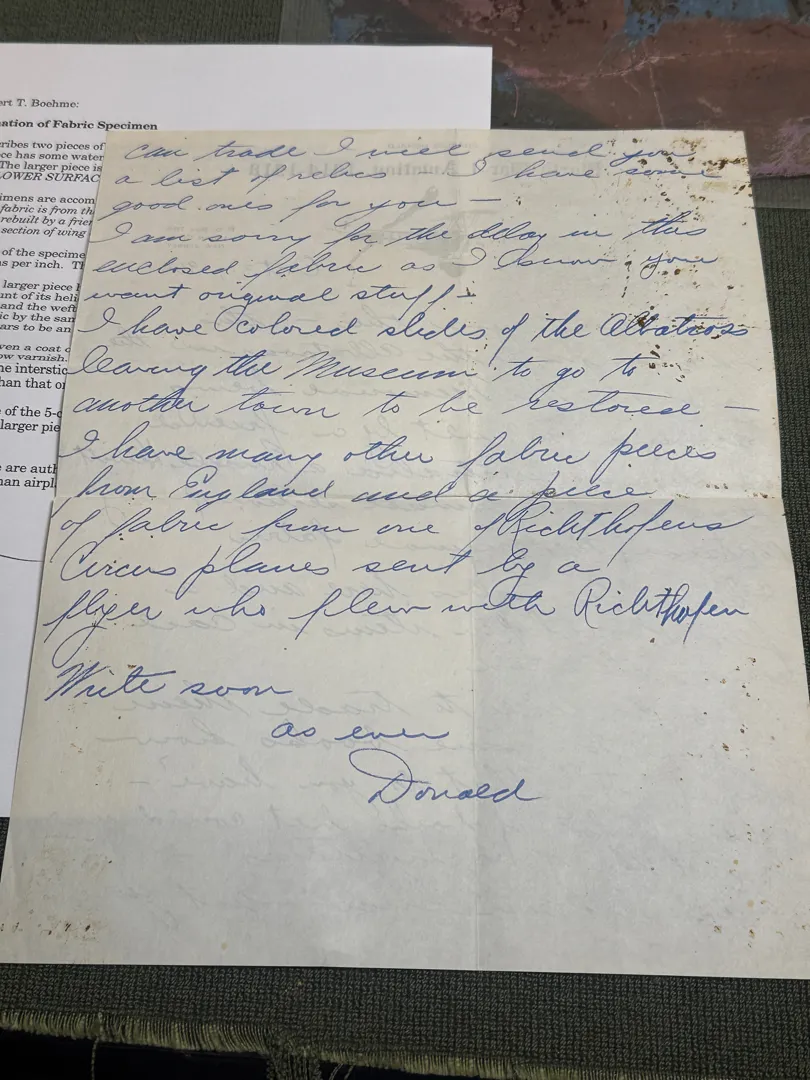 ert T. Boehme:
ation of Fabric Specimen
ribes two pieces of
ce has some water
The larger piece is
LOWER SURFAC
imens are accom
fabric is from th
rebuilt by a frie
section of wing
of the specime
s per inch. T
larger piece
unt of its heli
and the weft
ic by the sam
ars to be an
ven a coat o
ow varnish.
he interstic
han that o
e of the 5-c
larger pie
are auth
nan airpl
can trade I will send you
a list of relics I have some
good ones for you —
I am sorry for the delay in this
enclosed fabric as I know you
want original stuff —
I have colored slides of the Albatross
leaving the Museum to go to
another town to be restored —
I have many other fabric pieces
from England and a piece
of fabric from one of Richthofens
Circus planes sent by a
flyer who flew with Richthofen
Write soon
as ever
Donald